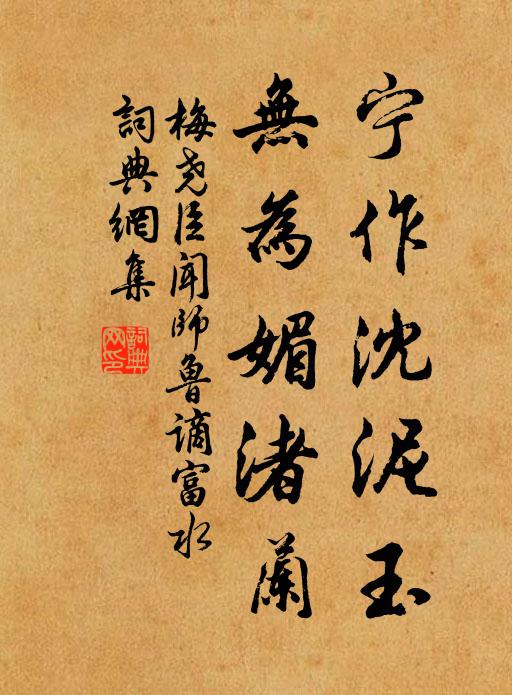 宁作沈泥玉
無為媚渚蘭
梅尧臣闻师鲁谪富水
詞典網集
詞典
网印